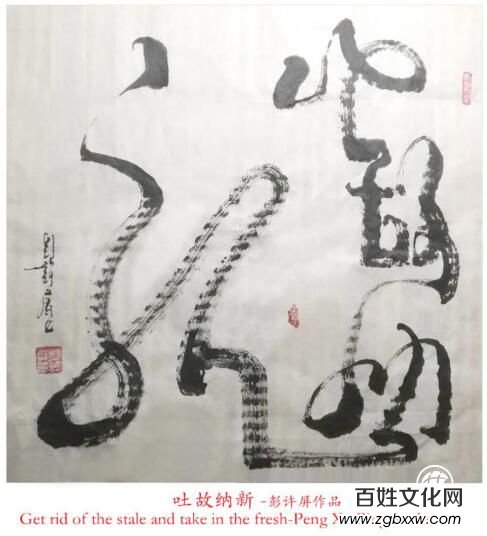 吐故纳新
吐故纳新 -彭许屏作品
Get rid of the stale and take in the fresh-Peng
百姓文化网
www.zgbxxw.com